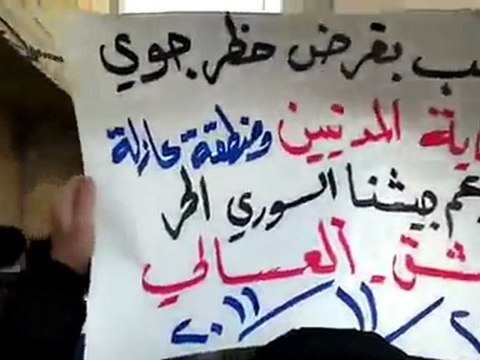 ـب بفرض حظر جوي
ـاية المدنيين ومنطقة عازلة
ـعم جيشنا السوري الحر
ـشق. العسالي
/ ١١ / ٢٠١١